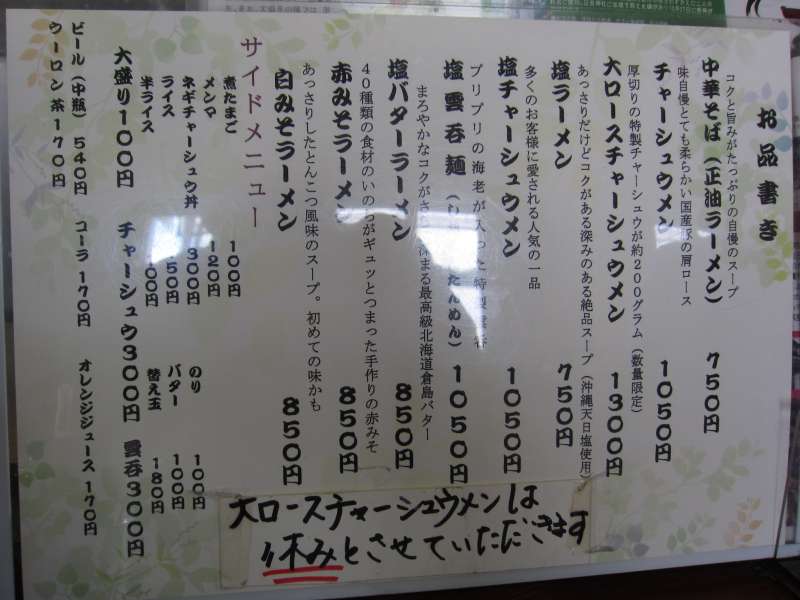 お品書き
コクと旨みがたっぷりの自慢のスープ
中華そば(正油ラーメン) 750円
味自慢とても柔らかい国産豚の肩ロース
チャーシュウメン 1050円
厚切りの特製チャーシュウが約200グラム(数量限定)
大ロースチャーシュウメン 1300円
あっさりだけどコクがある深みのある絶品スープ(沖縄天日塩使用)
塩ラーメン 750円
多くのお客様に愛される人気の一品
塩チャーシュウメン 1050円
プリプリの海老が入った特製雲呑
塩雲呑麺 たんめん) 1050円
まろやかなコクが 深まる最高級北海道倉島バター
塩バターラーメン 850円
40種類の食材のいのちがギュッとつまった手作りの赤みそ
赤みそラーメン 850円
あっさりしたとんこつ風味のスープ。初めての味かも
白みそラーメン 850円
サイドメニュー
煮たまご 100円
メンマ 120円
ネギチャーシュウ丼 300円
ライス 150円
半ライス 100円
のり 100円
バター 100円
替え玉 180円
大盛り100円 チャーシュウ300円 雲呑300円
ビール(中瓶) 540円 コーラ 170円 オレンジジュース 170円
ウーロン茶170円
大ロースチャーシュウメンは
休みとさせていただきます